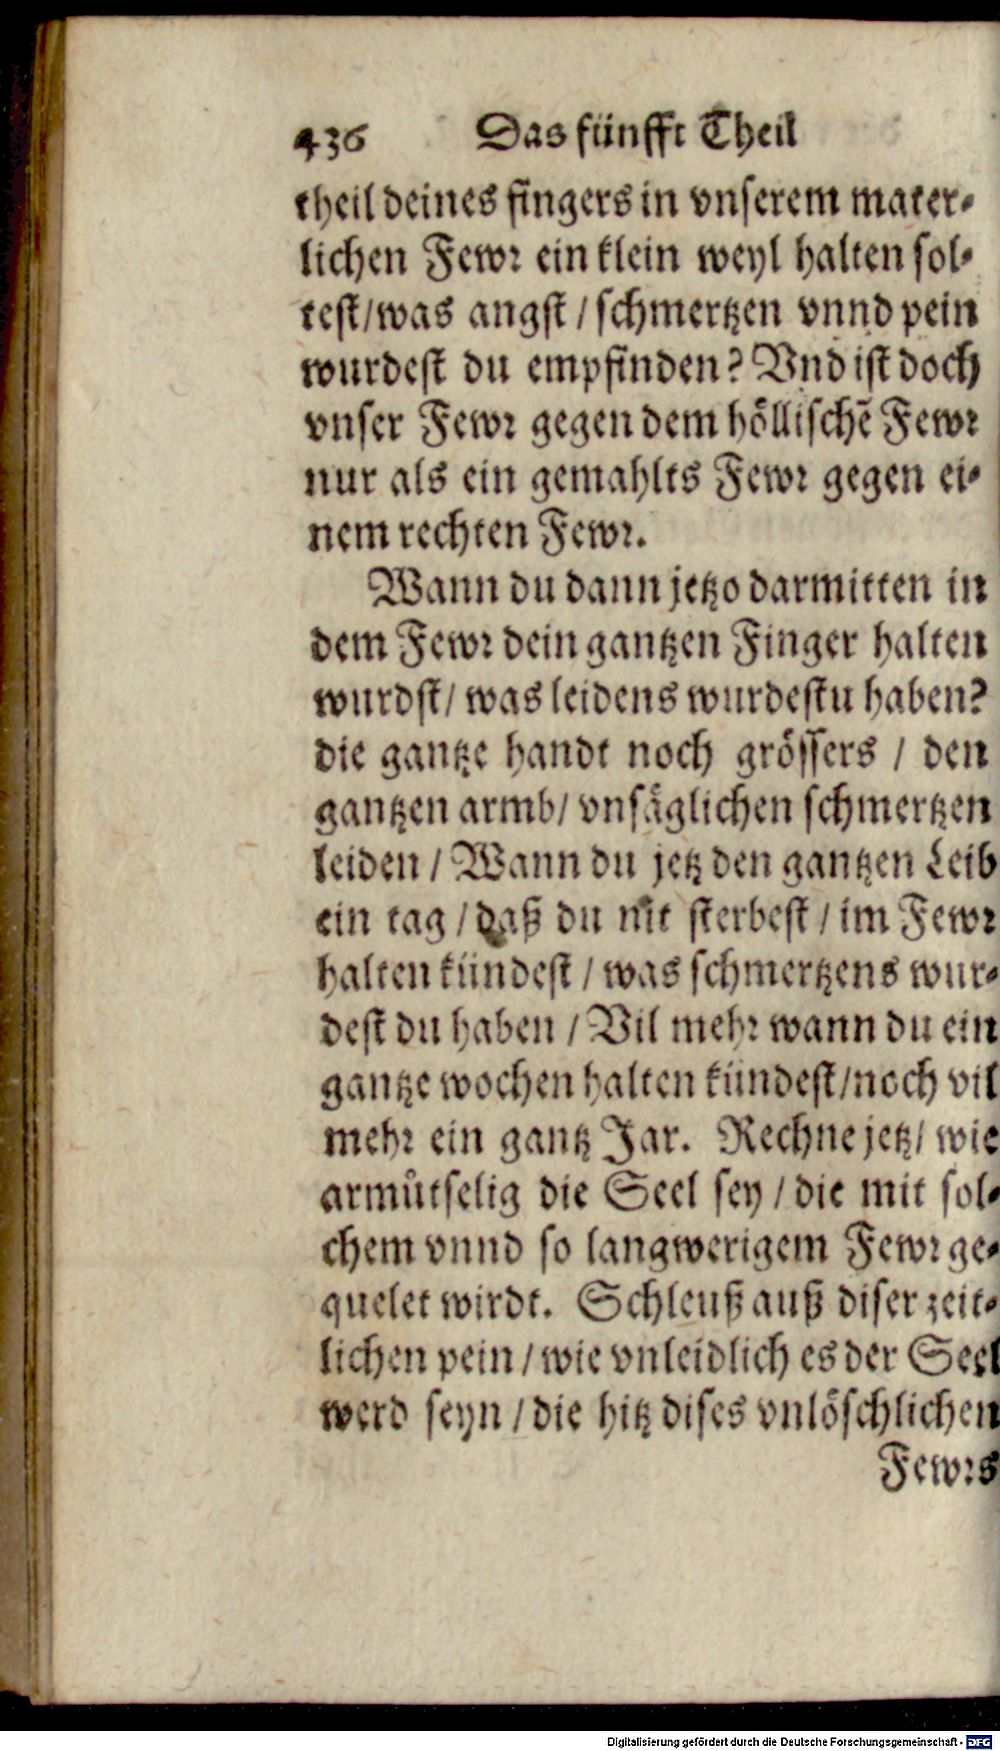 436 Das fünfft Theil
theil deines fingers in vnserem mater-
lichen Fewr ein klein weyl halten sol-
test/was angst / schmertzen vnnd pein
wurdest du empfinden? Vnd ist doch
vnser Fewr gegen dem höllischē Fewr
nur als ein gemahlts Fewr gegen ei-
nem rechten Fewr.
Wann du dann jetzo darmitten in
dem Fewr dein gantzen Finger halten
wurdst/ was leidens wurdestu haben?
die gantze handt noch grössers / den
gantzen armb/ vnsäglichen schmertzen
leiden / Wann du jetz den gantzen Leib
ein tag / daß du nit sterbest / im Fewr
halten kündest / was schmertzens wur-
dest du haben / Vil mehr wann du ein
gantze wochen halten kündest/noch vil
mehr ein gantz Jar. Rechne jetz/ wie
armůtselig die Seel sey / die mit sol-
chem vnnd so langwerigem Fewr ge-
quelet wirdt. Schleuß auß diser zeit-
lichen pein / wie vnleidlich es der Seel
werd seyn / die hitz dises vnlöschlichen
Fewrs
Digitalisierung gefördert durch die Deutsche Forschungsgemeinschaft - DFG